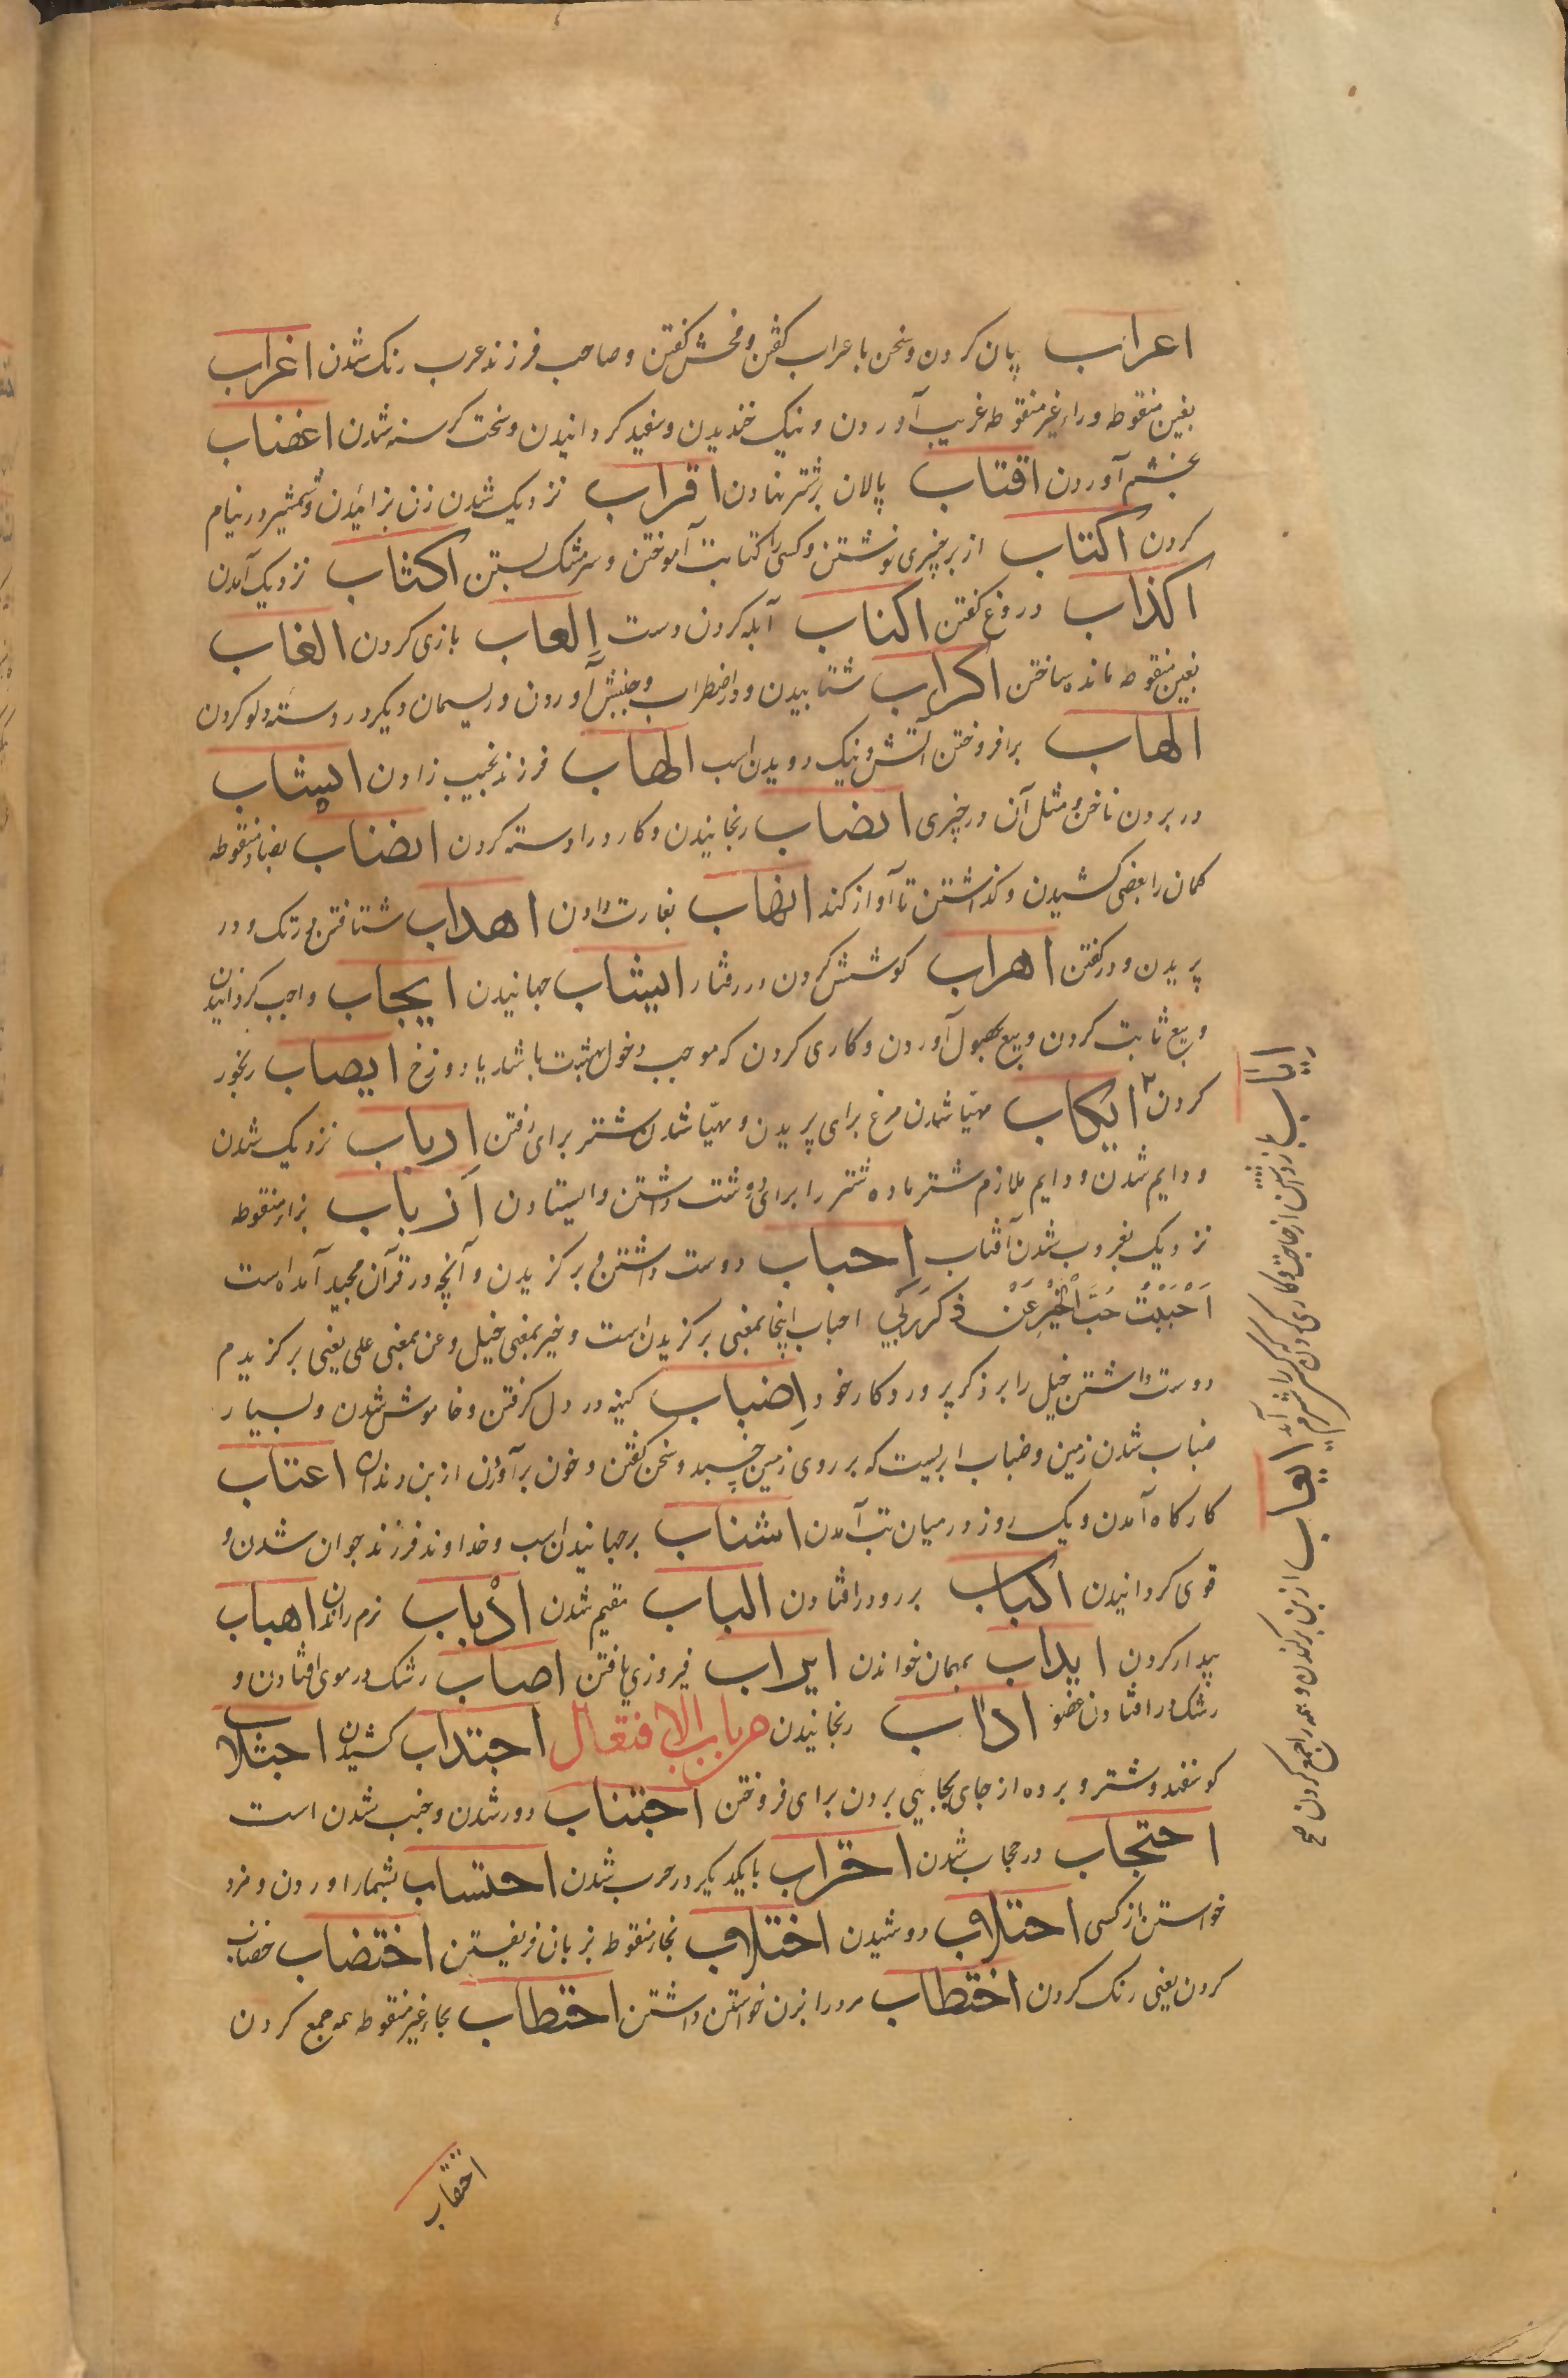 اعراب بیان کردن و سخن با عراب کفتن و فحش کفتن و صاحب فرزند عرب رنک شدن اغراب
بغین منقوطه و راء غیر منقوطه غریب آوردن و نیک خندیدن و سفید کردانیدن و سخت کرسنه شدن اغضاب
بخشم آوردن اقتاب پالان بر شتر نهادن اقراب نزدیک شدن زن بزائیدن و شمشیر در نیام
کردن اکتاب از بر چیزی نوشتن و کسی را کتابت آموختن و سر مشک بستن اکثاب نزدیک آمدن
اکذاب دروغ کفتن اکناب آبله کردن دست العاب بازی کردن الغاب
بغین منقوطه مانده ساختن اکراب شتابیدن و در اضطراب و جنبش آوردن و ریسمان دیکر در دسته دلو کردن
الهاب برافروختن آتش و نیک دویدن اسب الهاب فرزند نجیب زادن انشاب
در بردن ناخن و مثل آن در چیزی انصاب رنجانیدن و کارد را دسته کردن انضاب بضاد منقوطه
کمان را بعضی کشیدن و کذاشتن تا آواز کند انهاب بغارت دادن اهداب شتافتن مرتک و در
پریدن و در کفتن اهراب کوشش کردن در رفتار ایثاب جهانیدن ایجاب واجب کردانیدن
و بیع ثابت کردن و بیع بقبول آوردن و کاری کردن که موجب دخول بهشت باشد یا دوزخ ایصاب رنجور
کردن ایکاب مهیا شدن مرغ برای پریدن و مهیا شدن شتر برای رفتن ارباب نزدیک شدن
و دایم شدن و دایم ملازم شتر ماده شتر را برای دوشت داشتن و ایستادن ازباب بزاء منقوطه
نزدیک بغروب شدن آفتاب احباب دوست داشتن و برکزیدن و آنچه در قرآن مجید آمده است
اَحْبَبْتُ حُبَّ الْخَیْرِ عَنْ ذِکْرِ رَبِّی احباب اینجا بمعنی برکزیدن است و خیر بمعنی خیل و عن بمعنی علی یعنی برکزیدم
دوست داشتن خیل را بر ذکر پروردکار خود اضباب کینه در دل کرفتن و خاموش شدن و بسیار
ضباب شدن زمین و ضباب ابریست که بر روی زمین چسبد و سخن کفتن و خون برآوردن از بن دندان اغباب
کاه کاه آمدن و یک روز در میان تب آمدن اشباب برجهانیدن اسب و خداوند فرزند جوان شدن و
قوی کردانیدن اکباب بر رو در افتادن الباب مقیم شدن اذباب نرم راندن اهباب
بیدار کردن ایداب بمهمان خواندن ایراب فیروزی یافتن اصآب رشک در موی افتادن و
رشک در افتادن عضو ادآب رنجانیدن من باب الافتعال اجتذاب کشیدن اجتلاب
کوسفند و شتر و برده از جای بجایی بردن برای فروختن اجتناب دور شدن و جنب شدن است
احتجاب در حجاب شدن احتراب با یکدیکر در حرب شدن احتساب بشمار آوردن و مزد
خواستن از کسی احتلاب دوشیدن اختلاب بخاء منقوطه بزبان فریفتن اختضاب خضاب
کردن یعنی رنک کردن اختطاب مرد را بزن خواستن داشتن احتطاب بحاء غیر منقوطه همه جمع کردن
ایعاب از بن برکندن و همه را جمع کردن صح